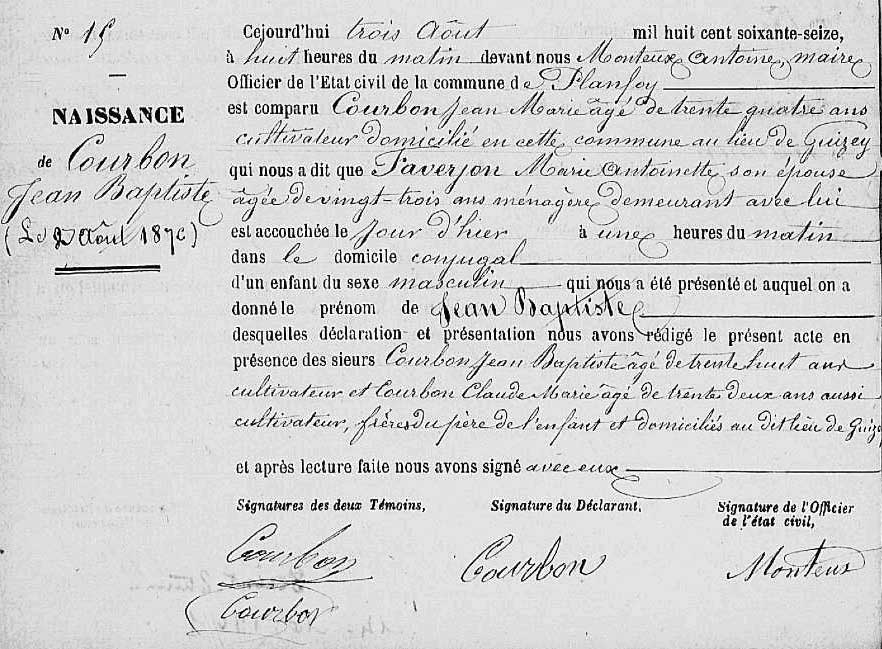 N° 15
NAISSANCE
de Courbon
Jean Baptiste
(Le 2 Août 1876)
Cejourd'hui trois Août mil huit cent soixante-seize,
à huit heures du matin devant nous Monteux Antoine, maire
Officier de l'Etat civil de la commune de Planfoy
est comparu Courbon Jean Marie âgé de trente quatre ans
cultivateur domicilié en cette commune au lieu de Guizey
qui nous a dit que Faverjon Marie Antoinette son épouse
âgée de vingt-trois ans ménagère demeurant avec lui
est accouchée le jour d'hier à une heures du matin
dans le domicile conjugal
d'un enfant du sexe masculin qui nous a été présenté et auquel on a
donné le prénom de Jean Baptiste
desquelles déclaration et présentation nous avons rédigé le présent acte en
présence des sieurs Courbon Jean Baptiste âgé de trente huit ans
cultivateur et Courbon Claude Marie âgé de trente deux ans aussi
cultivateur, frères du père de l'enfant et domiciliés au dit lieu de Guizey
et après lecture faite nous avons signé avec eux
Signatures des deux Témoins, Signature du Déclarant, Signature de l'Officier
de l'état civil,
Courbon Courbon Monteux
Courbon